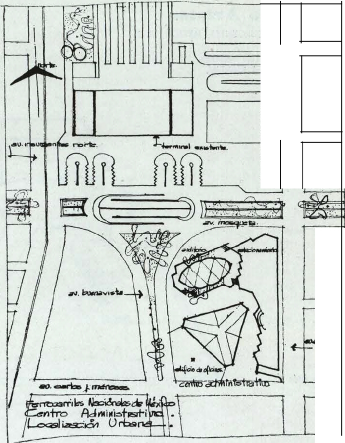 norte.
av. insurgentes norte.
terminal existente.
av. mosqueta.
auditorio
estacionamiento
av. buenavista
edificio de oficinas
av. carlos j. meneses
centro administrativo
Ferrocarriles Nacionales de México
Centro Administrativo.
Localización Urbana.